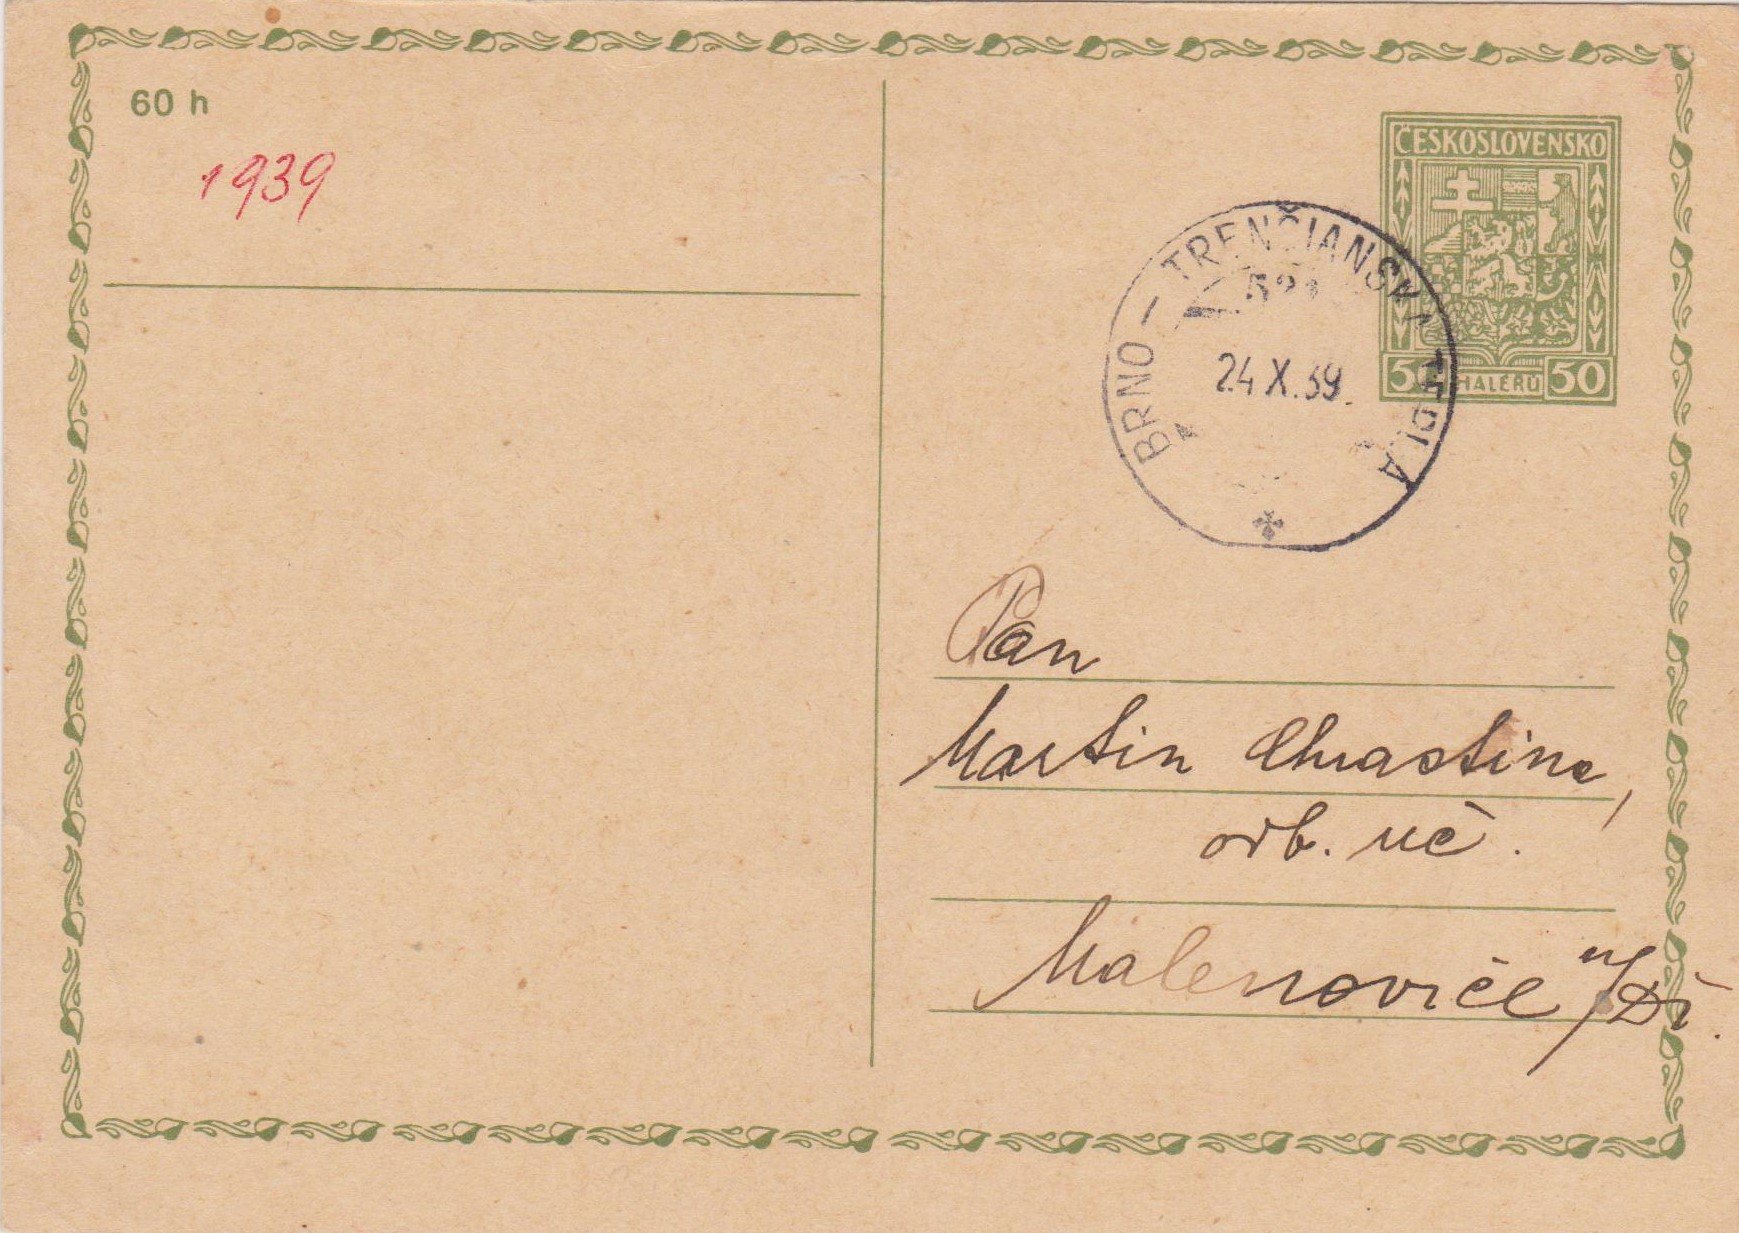 60 h
1939
ČESKOSLOVENSKO
50 HALÉŘŮ 50
BRNO – TRENČIANSKA TEPLA
24.X.39.
Pan
Martin Chrastina,
odb. uč.
Malenovice